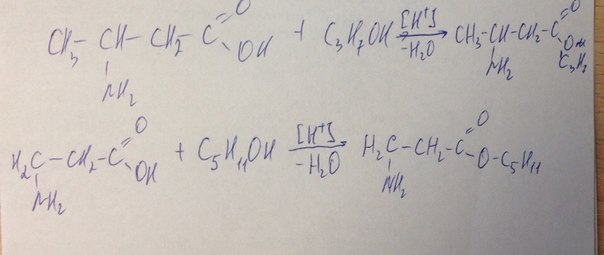 CH3 – CH – CH2 – C =O – OH + C3H7OH [H+] –H2O → CH3 – CH – CH2 – C =O – OH C3H7
NH2 NH2
H2C – CH2 – C =O – OH + C5H11OH [H+] –H2O → H2C – CH2 – C =O – O – C5H11
NH2 NH2